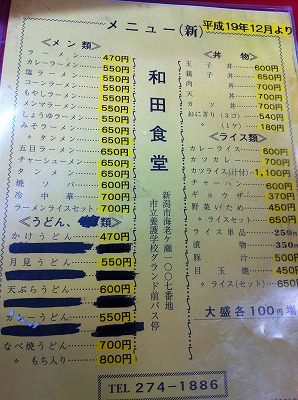 メニュー(新)
平成19年12月より
<メン類>
ラーメン 470円
カレーラーメン 550円
塩ラーメン 550円
コーンラーメン 550円
もやしラーメン 550円
メンマラーメン 550円
しょうゆラーメン 550円
みそラーメン 650円
タンタンメン 650円
五目ラーメン 650円
チャーシューメン 650円
タンメン 650円
焼ソバ 600円
冷中華 700円
ラーメンライスセット 700円
<うどん、 類>
かけうどん 470円
月見うどん 550円
天ぷらうどん 600円
カレーうどん 550円
なべ焼うどん 700円
〃 もち入り 800円
和田食堂
新潟市海老ケ瀬一〇〇七番地
市立養護学校グランド前バス停
<丼物>
玉子丼 600円
親子丼 650円
肉丼 700円
天丼 700円
カツ丼 700円
おにぎり(3コ) 540円
〃 (1ケ) 180円
<ライス類>
カレーライス 600円
カツカレー 700円
カツライス(汁付) 1,100円
チャーハン 600円
ギョーザ 370円
野菜いため 450円
〃 ライスセット 650円
ライス単品 250円
漬物 350円
豚汁 500円
目玉焼 450円
〃 ライス(セット) 650円
大盛各100円増
TEL 274-1886